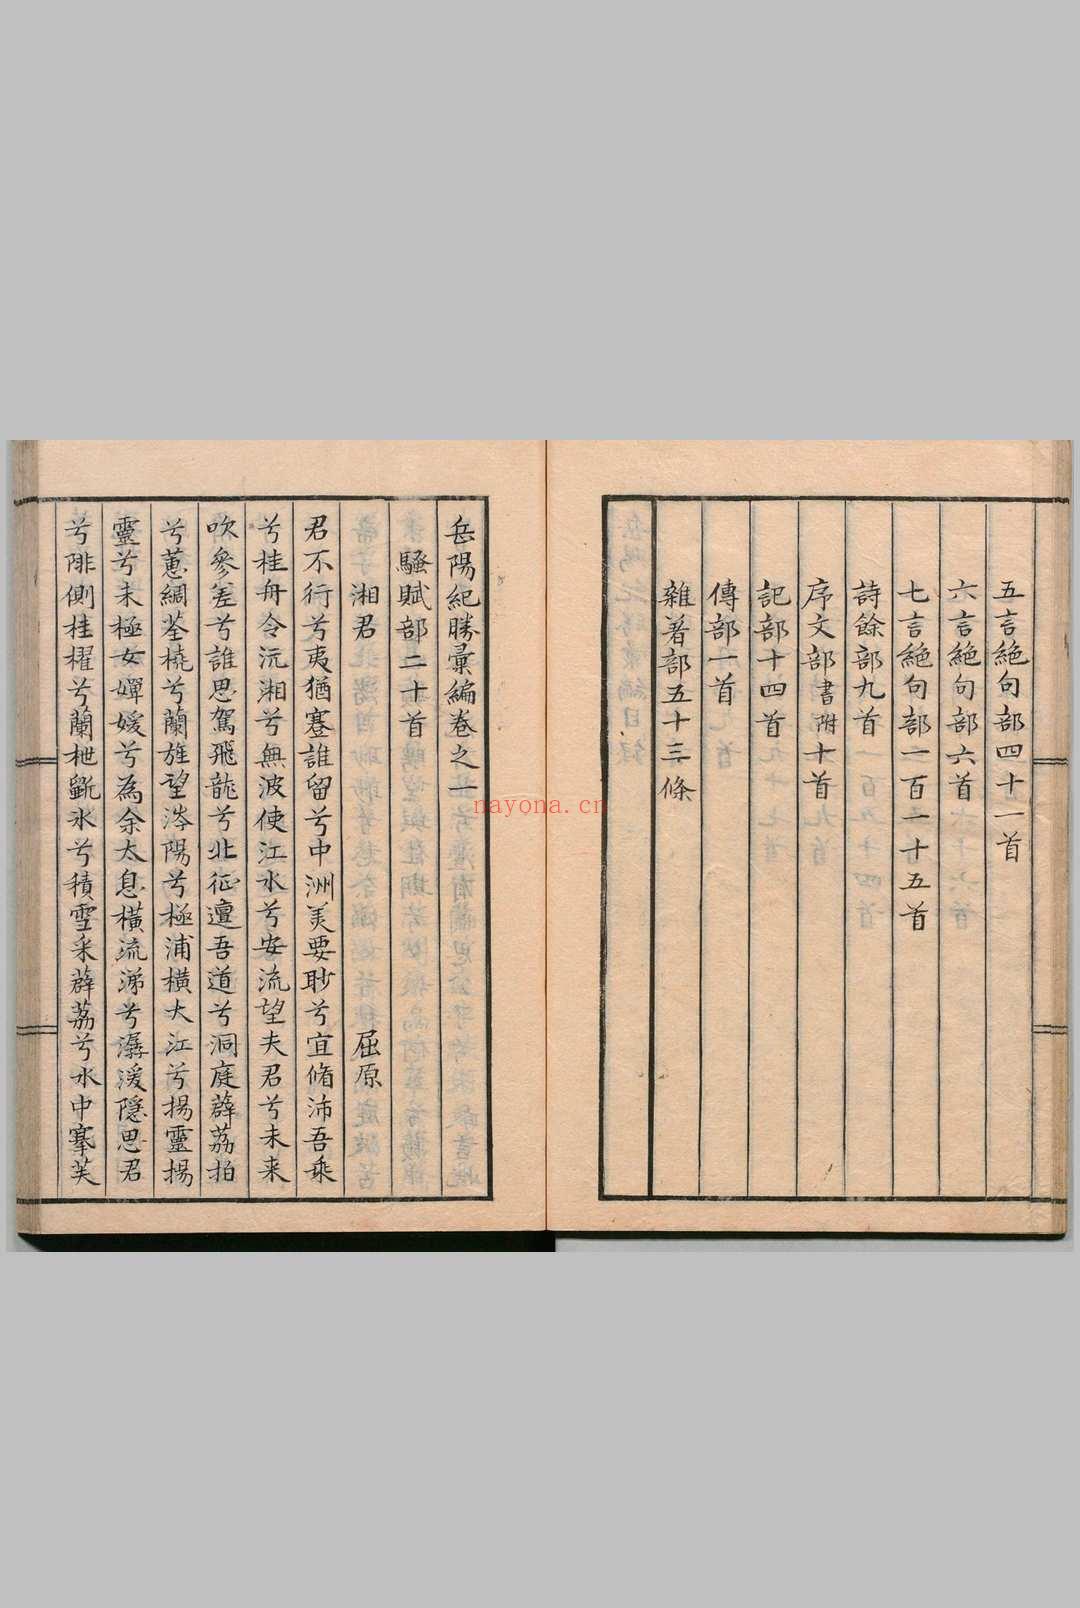 五言絕句部四十一首
六言絕句部六首
七言絕句部一百二十五首
詩餘部九首
序文部書附十首
記部十四首
傳部一首
雜著部五十三條
岳陽紀勝彙編卷之一
騷賦部二十首
湘君 屈原
君不行兮夷猶蹇誰留兮中洲美要眇兮宜脩沛吾乘
兮桂舟令沅湘兮無波使江水兮安流望夫君兮未来
吹參差兮誰思駕飛龍兮北征邅吾道兮洞庭薜荔拍
兮蕙綢荃橈兮蘭旌望涔陽兮極浦橫大江兮揚靈揚
靈兮未極女嬋媛兮為余太息橫流涕兮潺湲隱思君
兮陫側桂櫂兮蘭枻斲氷兮積雪采薜荔兮水中搴芙
nayona.cn